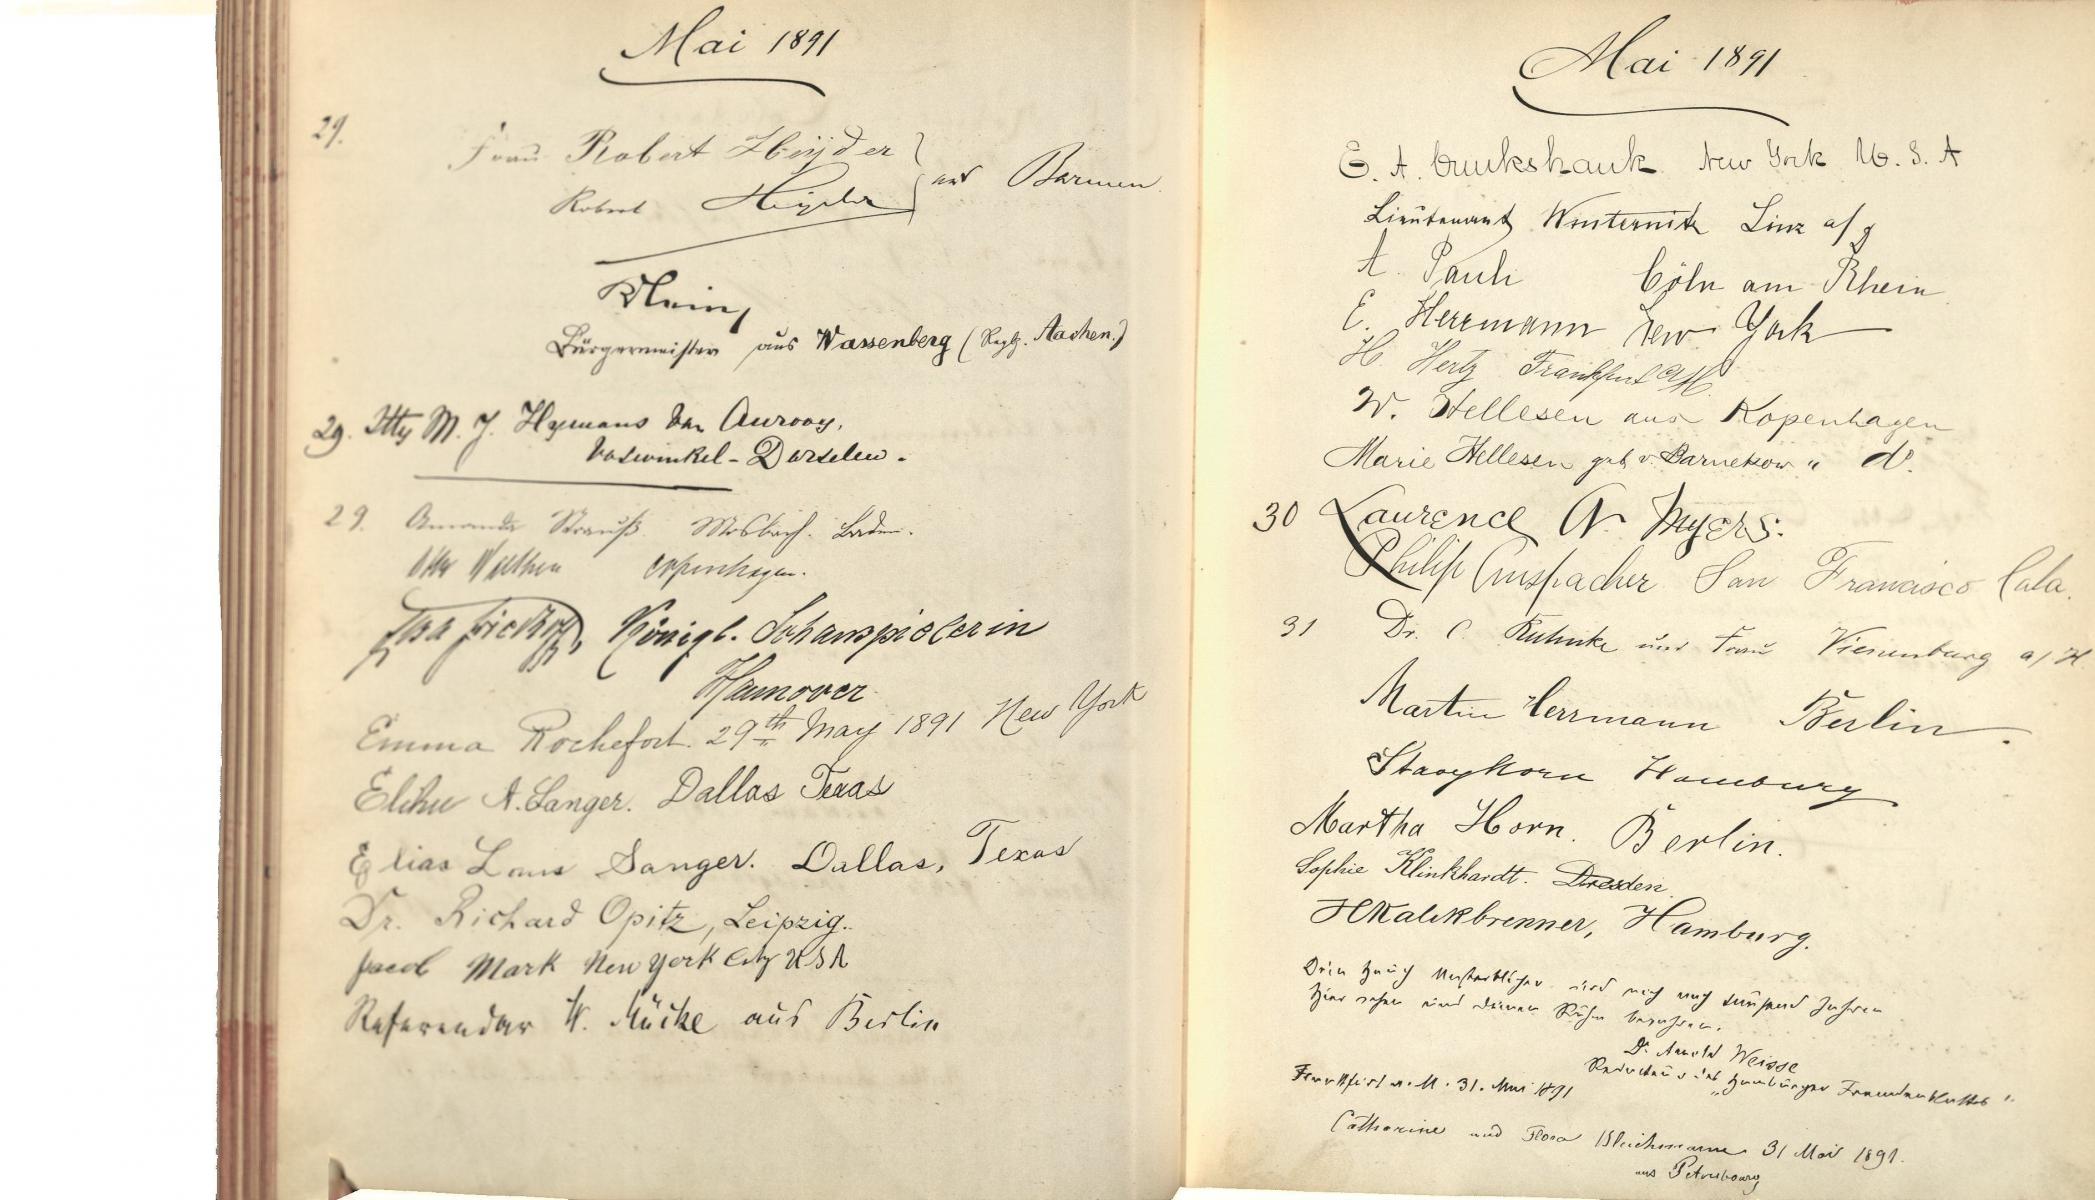 Mai 1891
29.
Frau Robert Heyder
Robert Heyder aus Barmen
Klein,
Bürgermeister aus Wassenberg (Regbz. Aachen.)
29. M. J. Hymans van
29. Amanda Strauß Mosbach. Baden.
Otto Copenhagen.
Königl. Schauspielerin
Hannover
Emma Rochefort. 29th May 1891 New York
Elihu A. Sanger. Dallas Texas
Elias Louis Sanger. Dallas, Texas
Dr. Richard Opitz, Leipzig.
Jacob Mark New York City USA
Referendar W. Mücke aus Berlin
Mai 1891
E. A. Cruikshank New York U. S. A
Lieutenant Winternitz Linz a/
A. Pauli Cöln am Rhein
E. Herrmann New York
H. Hertz Frankfurt a/M.
W. Hellesen aus Kopenhagen
Marie Hellesen geb. v. Barnekow " do.
30 Laurence A. Myers.
Philip Anspacher San Francisco Cala.
31 Dr. C. Kuhnke und Frau Vienenburg a/H.
Martin Herrmann Berlin.
Hamburg
Martha Horn. Berlin.
Sophie Klinkhardt. Dresden
HKalckbrenner, Hamburg.
Dein Hauch Unsterblicher wird mich nach tausend Jahren
Hier sehen und deinen Ruhm
Dr. Arnold Weisse
Redacteur des "Hamburger Fremdenblattes".
Frankfurt a. M. 31. Mai 1891
Catharine und Flora Bleichmann 31 Mai 1891.
aus Petersbourg